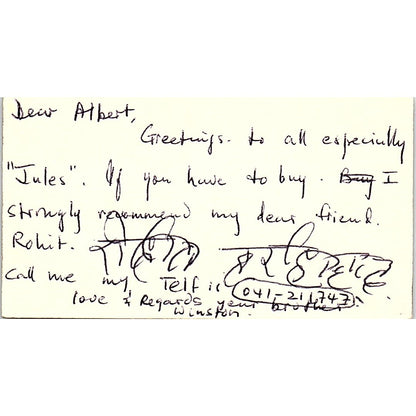 Dear Albert,
Greetings. to all especially
"Jules". If you have to buy. Buy I
strongly recommend my dear friend.
Rohit.
call me my Telf is 041-211747
love & Regards your brother
Winston.